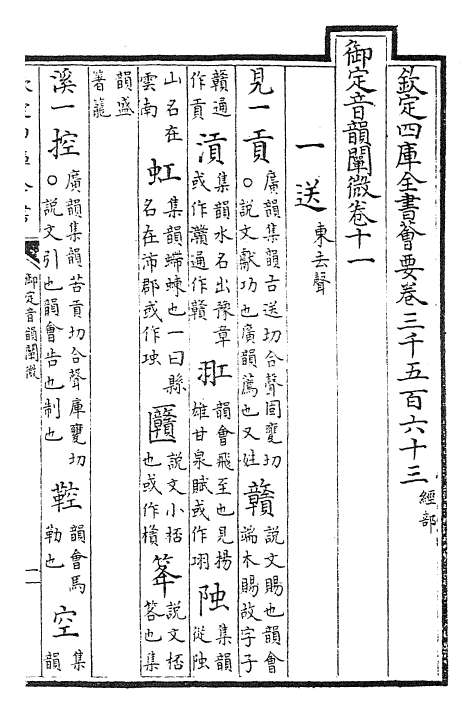 欽定四庫全書薈要卷三千五百六十三 經部
御定音韻闡微卷十一
一送 東去聲
見一貢 廣韻集韻古送切合聲固甕切○說文獻功也廣韻薦也又姓 贛 說文賜也韻會端木賜故字子
贛通作貢 集韻水名出豫章或作灨通作贛 羾 韻會飛至也見揚雄甘泉賦或作 集韻從
山名在雲南 虹 集韻螮蝀也一曰縣名在沛郡或作 㔶 說文小桮也或作槓 䇨 說文桮笿也集
韻盛箸籠
溪一控 廣韻集韻苦貢切合聲庫甕切○說文引也韻會告也制也 鞚 韻會馬勒也 空 集韻
御定音韻闡微
一